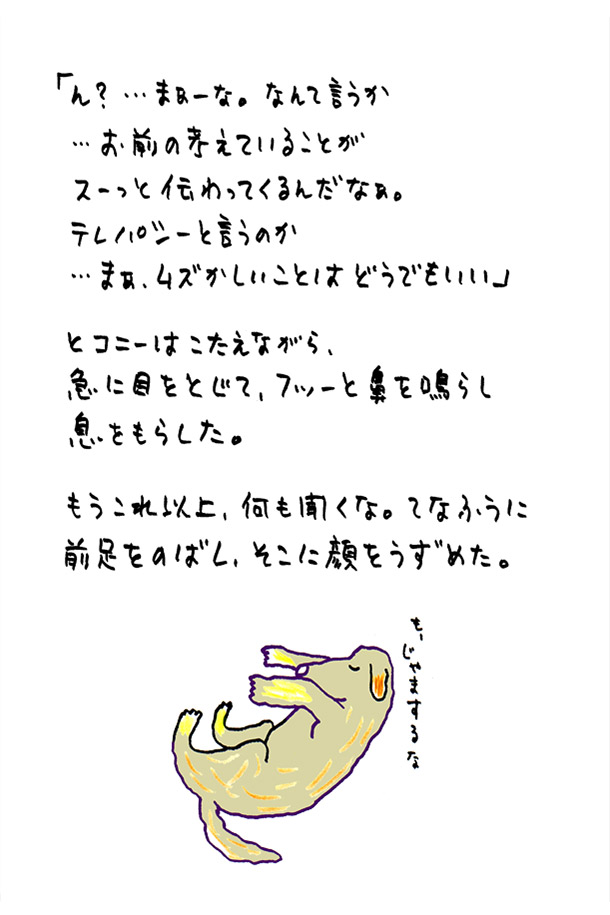 「ん？…まぁーな。なんて言うか
…お前の考えていることが
スーっと伝わってくるんだなぁ。
テレパシーと言うのか
…まぁ、ムズかしいことはどうでもいい」
とコニーはこたえながら、
急に目をとじて、フッーと鼻を鳴らし
息をもらした。
もうこれ以上、何も聞くな。てなふうに
前足をのばし、そこに顔をうずめた。
も、じゃまするな